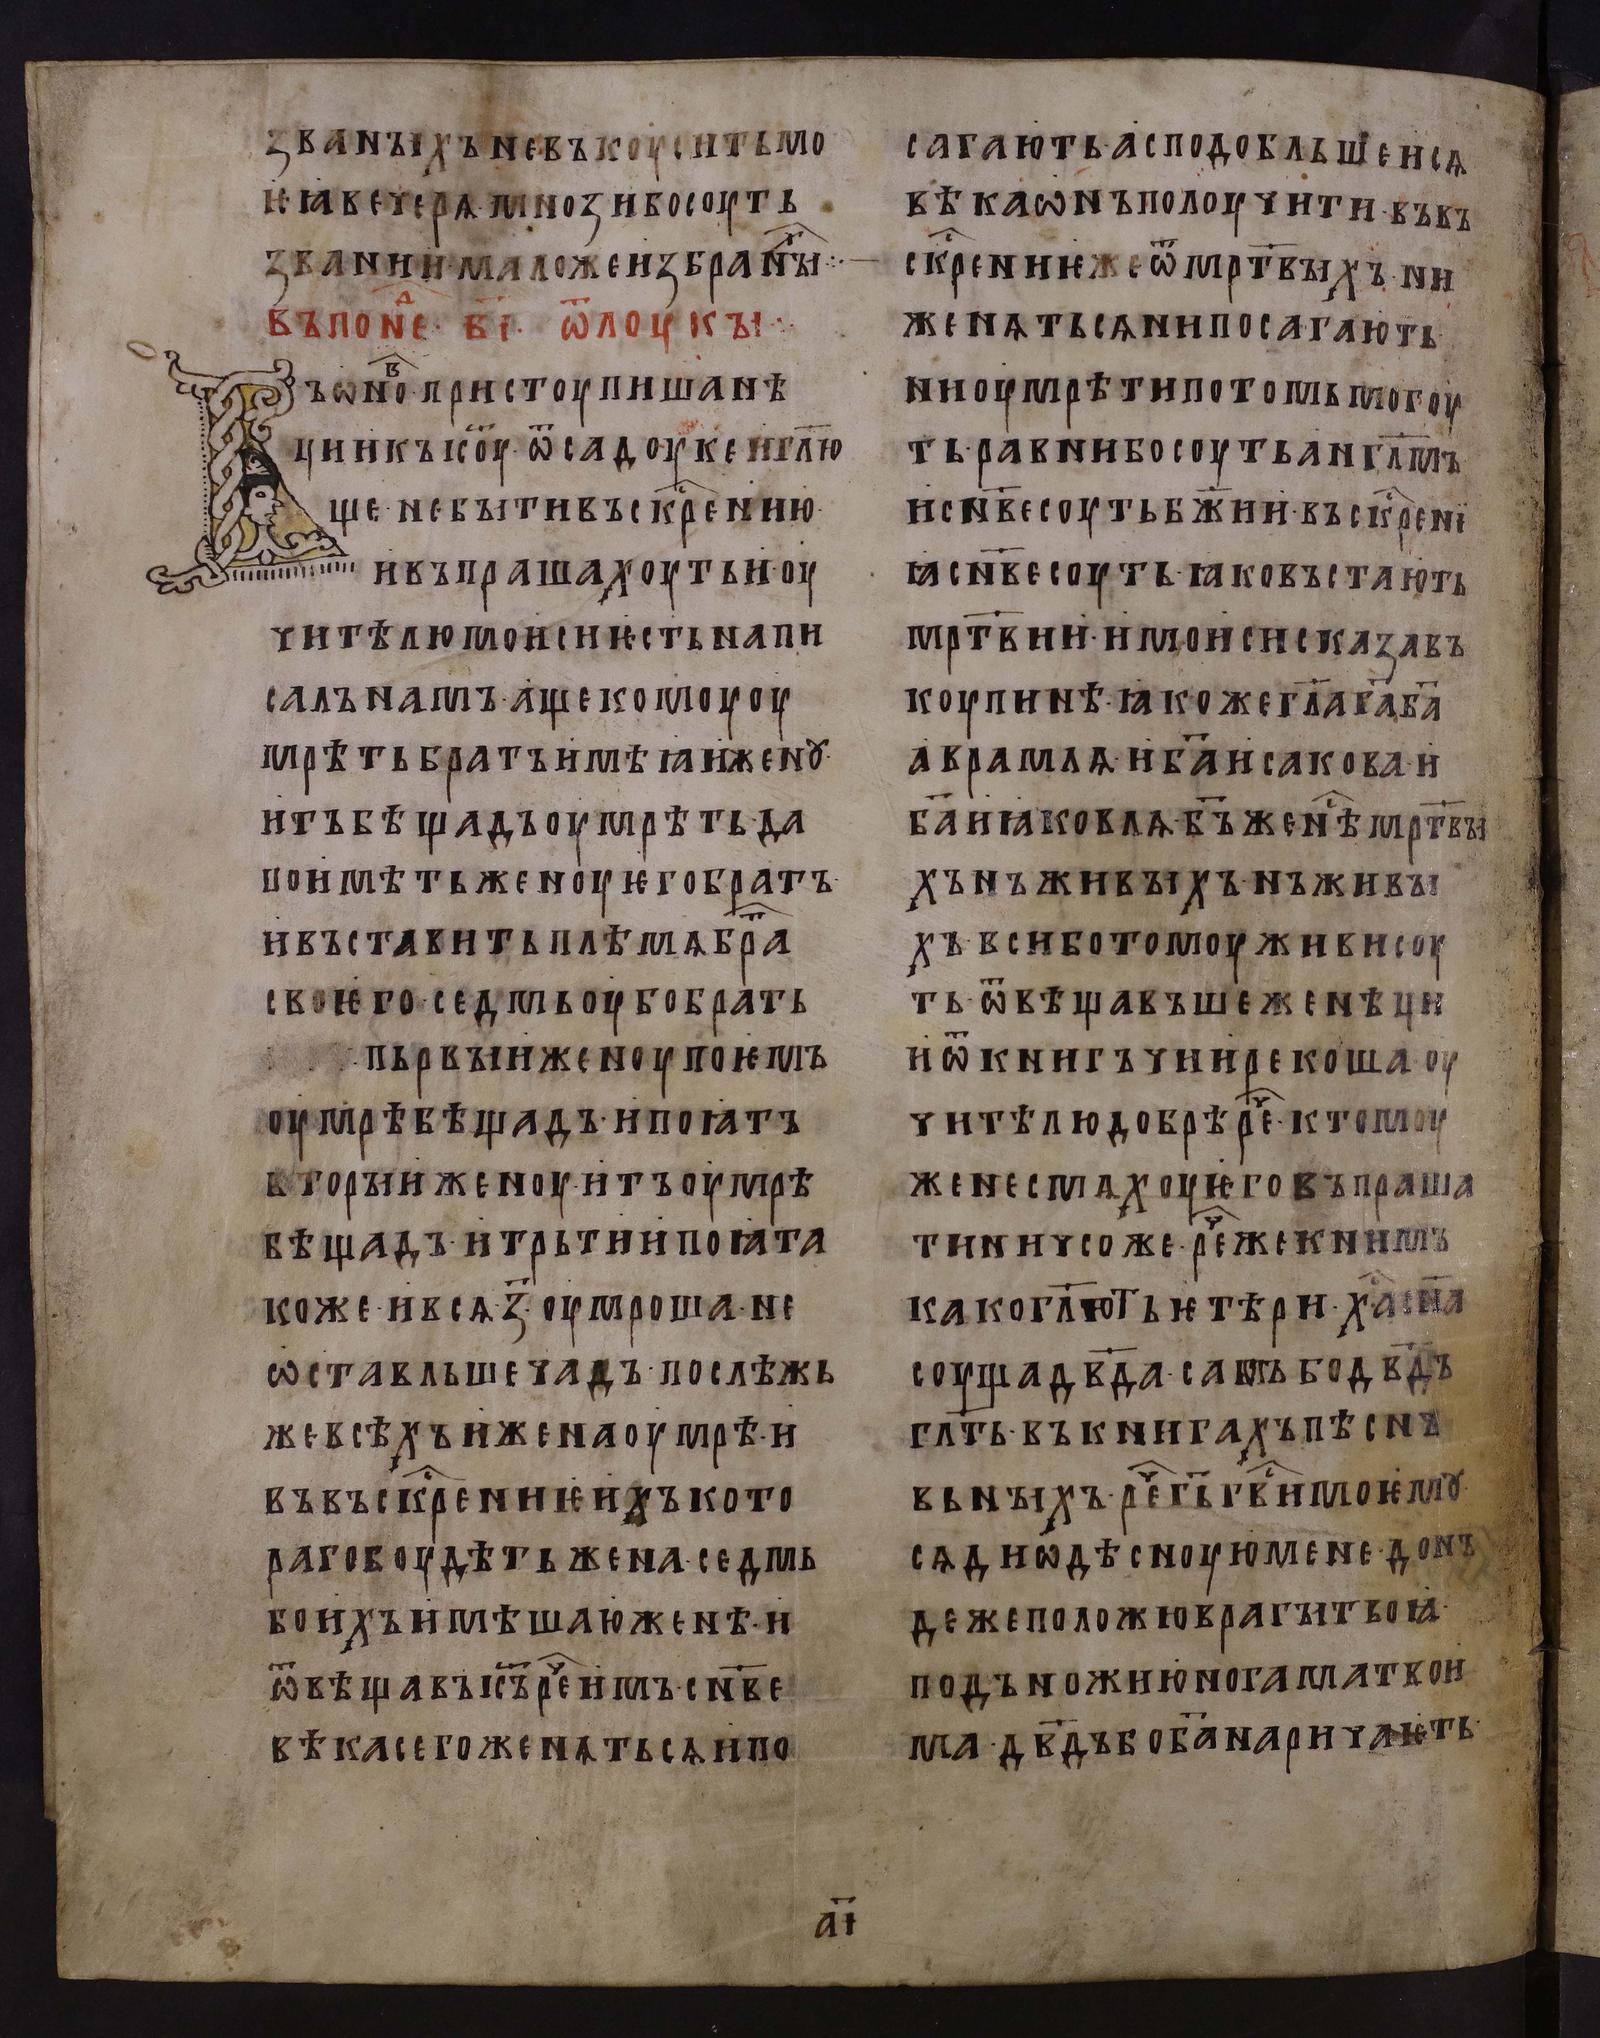 званꙑхъ не въкоусить мо
ѥꙗ вечерѧ· мнози бо соуть
звании· мало же избранꙑ·:·
въ поне҇д· ві҃· ѿ лоукꙑ·:·
Въ ѡно в҇· пристоупиша нѣ
ции къ іс҃оу· ѿ садоукеи гл҃ю
ще· не бꙑти въскр҇ению·
и въпрашахоуть и· оу
чителю моиси ѥсть напи
салъ намъ· аще комоу оу
мрѣть братъ имѣꙗи женꙋ·
и тъ бѣщадъ оумрѣть· да
поиметь женоу ѥго братъ·
и въставить плѣмѧ бра҃
своѥго· седмь оубо брать
пьрвꙑи женоу поѥмъ
оумрѣ бѣщадъ· и поꙗтъ
вторꙑи женоу· и тъ оумрѣ
бѣщадъ· и трьтии поꙗ та
коже· и всѧ з҃· оумроша· не
ѡставльше чадъ· послѣжь
же всѣхъ и жена оумрѣ· и
въ въскр҇ениѥ ихъ кото
раго боудѣть жена· седмь
бо ихъ имѣшаю женѣ· и
ѿвѣщавъ іс҃ъ ре҇ч имъ· сн҃ве
вѣка сего женѧтьсѧ и по
сагають· а сподобльшеисѧ
вѣка ѡнъ полоучити· въ въ
скр҇ениѥ же ѿ мрт҃вꙑхъ· ни
женѧтьсѧ ни посагають
ни оумрѣти потомь могоу
ть· равни бо соуть анг҃лмъ
и сн҃ве соуть бж҃ии· въскр҇ени
ꙗ сн҃ве соуть· ꙗко въстають
мрт҃вии· и моиси сказавъ
коупинѣ· ꙗкоже гл҃а га҃ ба҃
аврамлѧ· и ба҃ исакова· и
ба҃ иꙗковлѧ· бъ҃ же н҇ѣ мрт҃вꙑ
хъ нъ живꙑхъ· нъ живꙑ
хъ· вси бо томоу живи соу
ть· ѿвѣщавъше же нѣци
и ѿ книгъчии рекоша· оу
чителю добрѣ ре҇ч· к томоу
же не смѧхоу ѥго въпраша
ти ничсоже· ре҇ч же к нимъ
како гл҃ють ѥтѣри· ха҇ сн҃а
соуща дв҃да· самъ бо дв҃дъ
гл҃ть· въ книгахъ пѣснъ
вьнꙑхъ· ре҇ч гь҃ гв҇и моѥмꙋ·
сѧди ѡдѣсноую мене· донъ
деже положю врагꙑ твоꙗ·
подъножию ногама твои
ма· дв҃дъ бо ба҃ наричаѥть·
аі҃